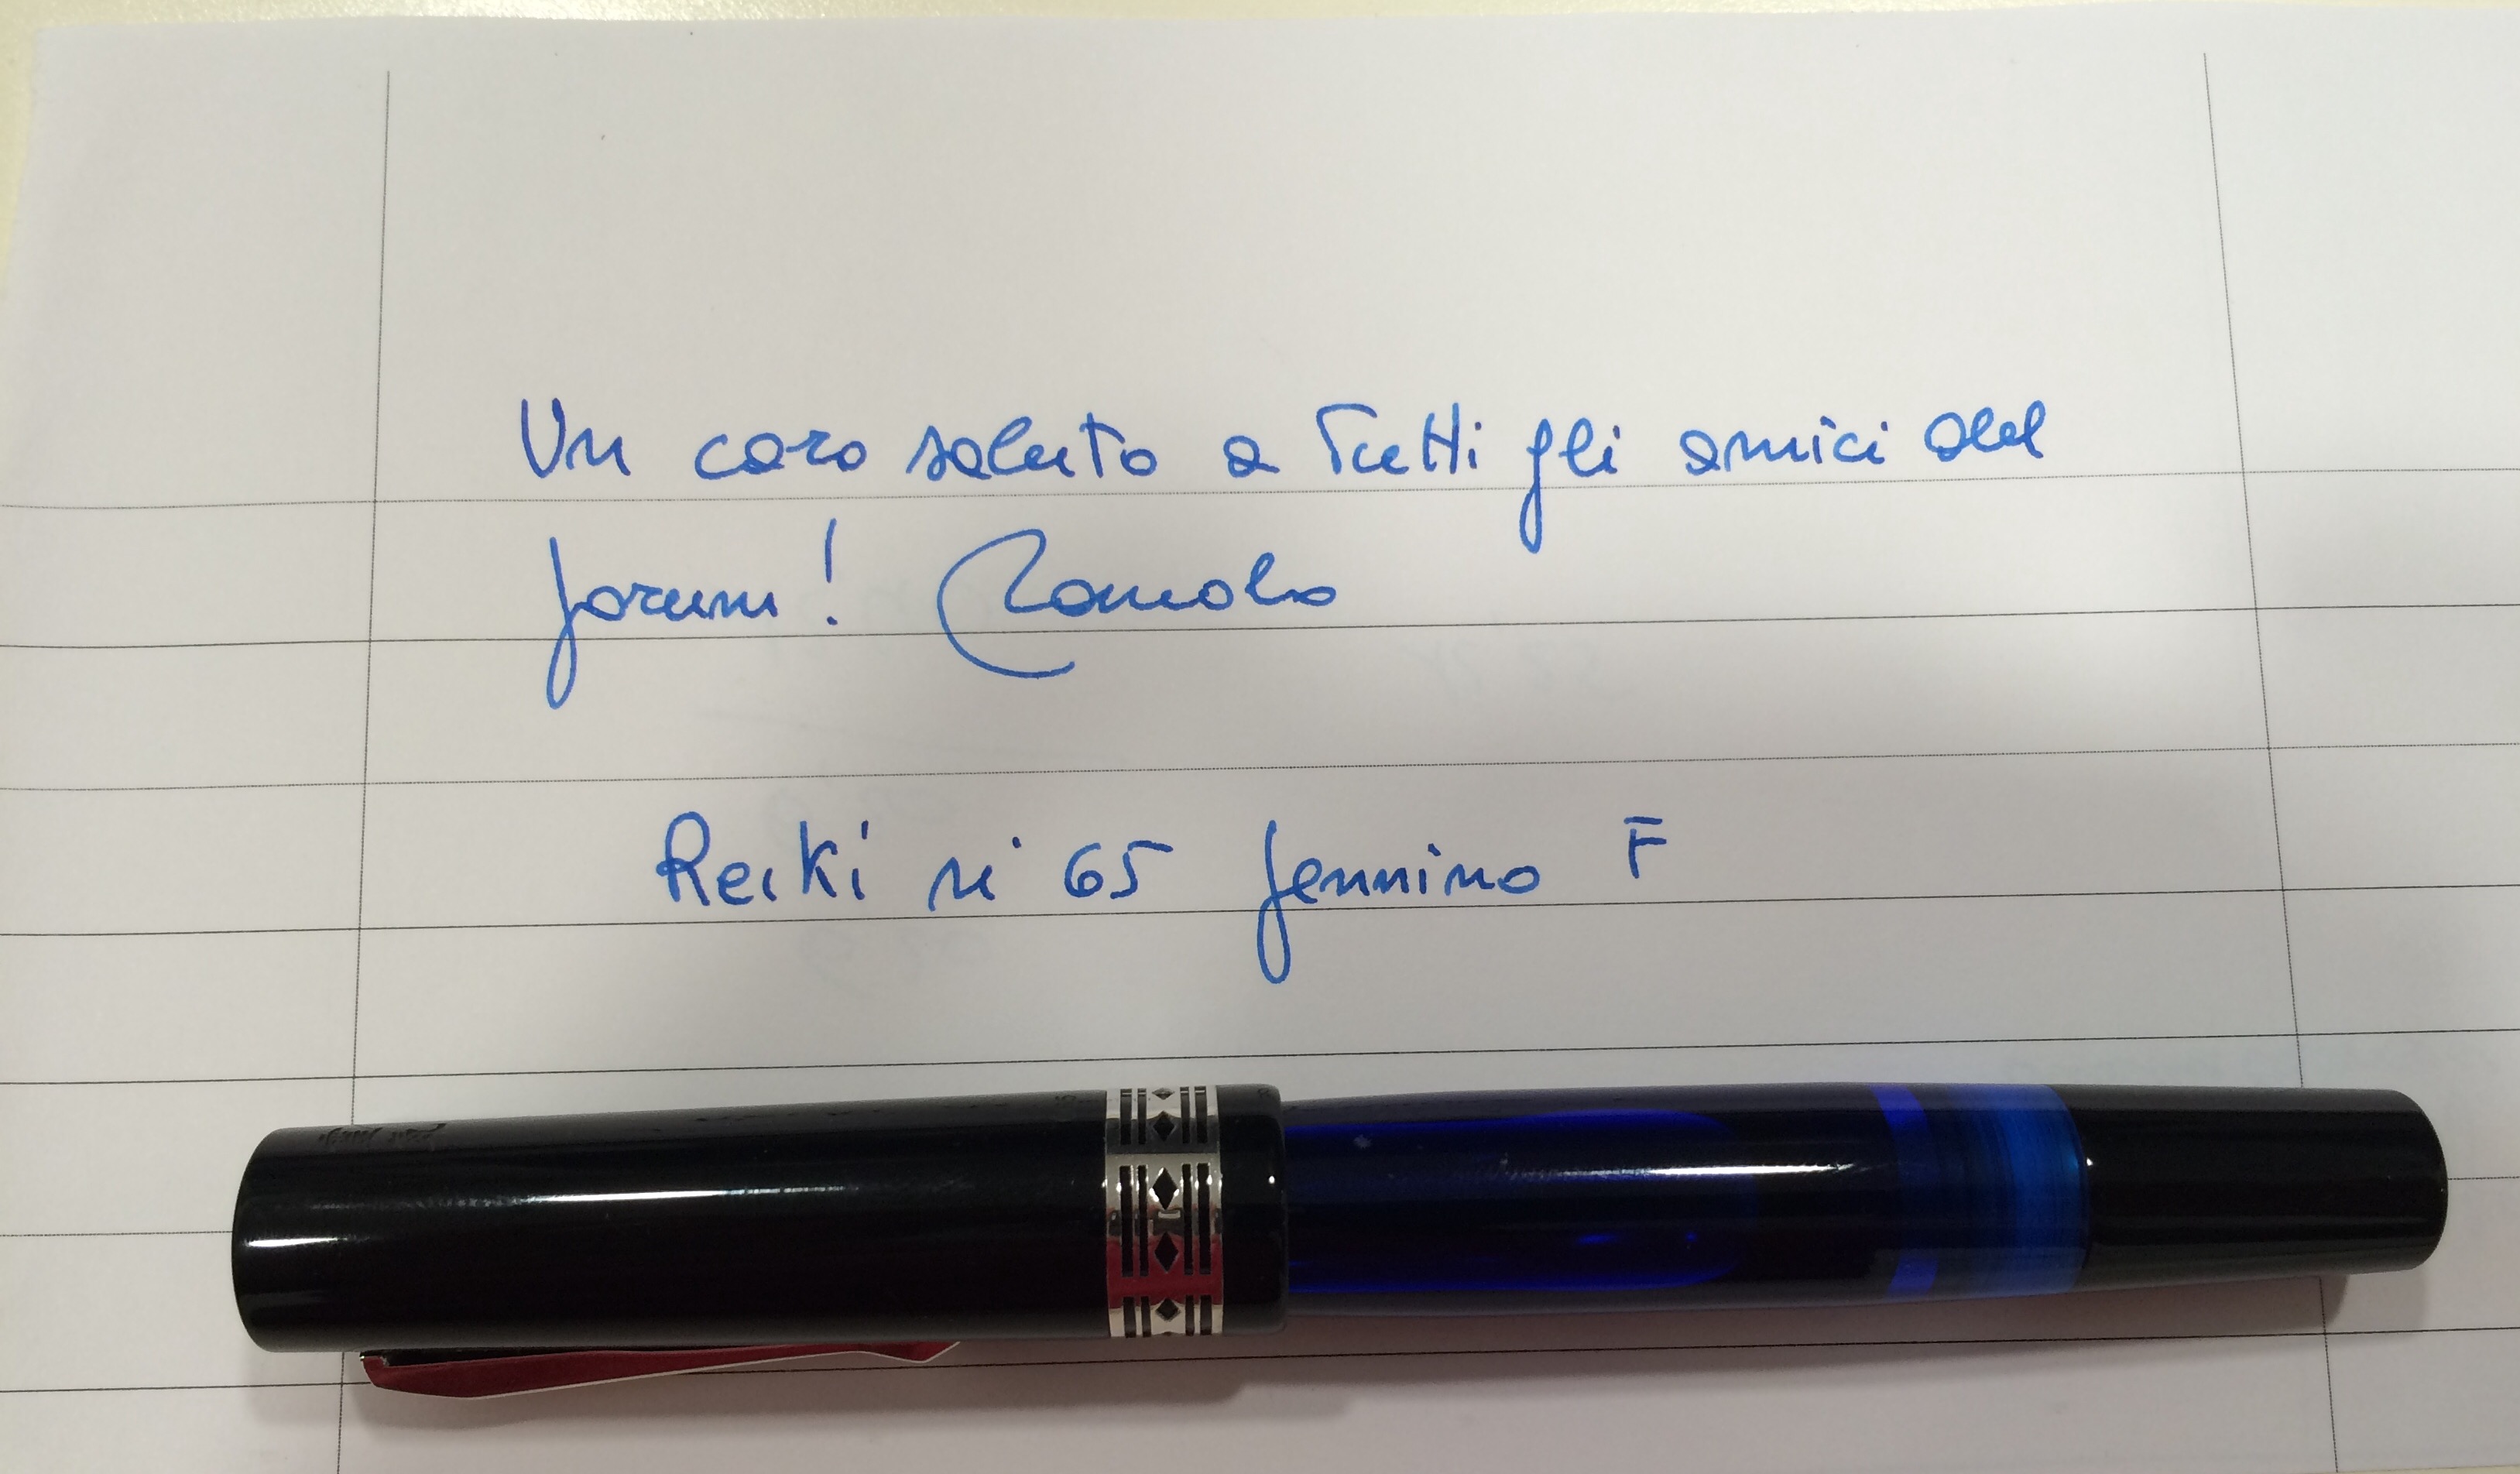 Un caro saluto a Tutti gli amici del
forum! Romolo
Reiki 65 pennino F